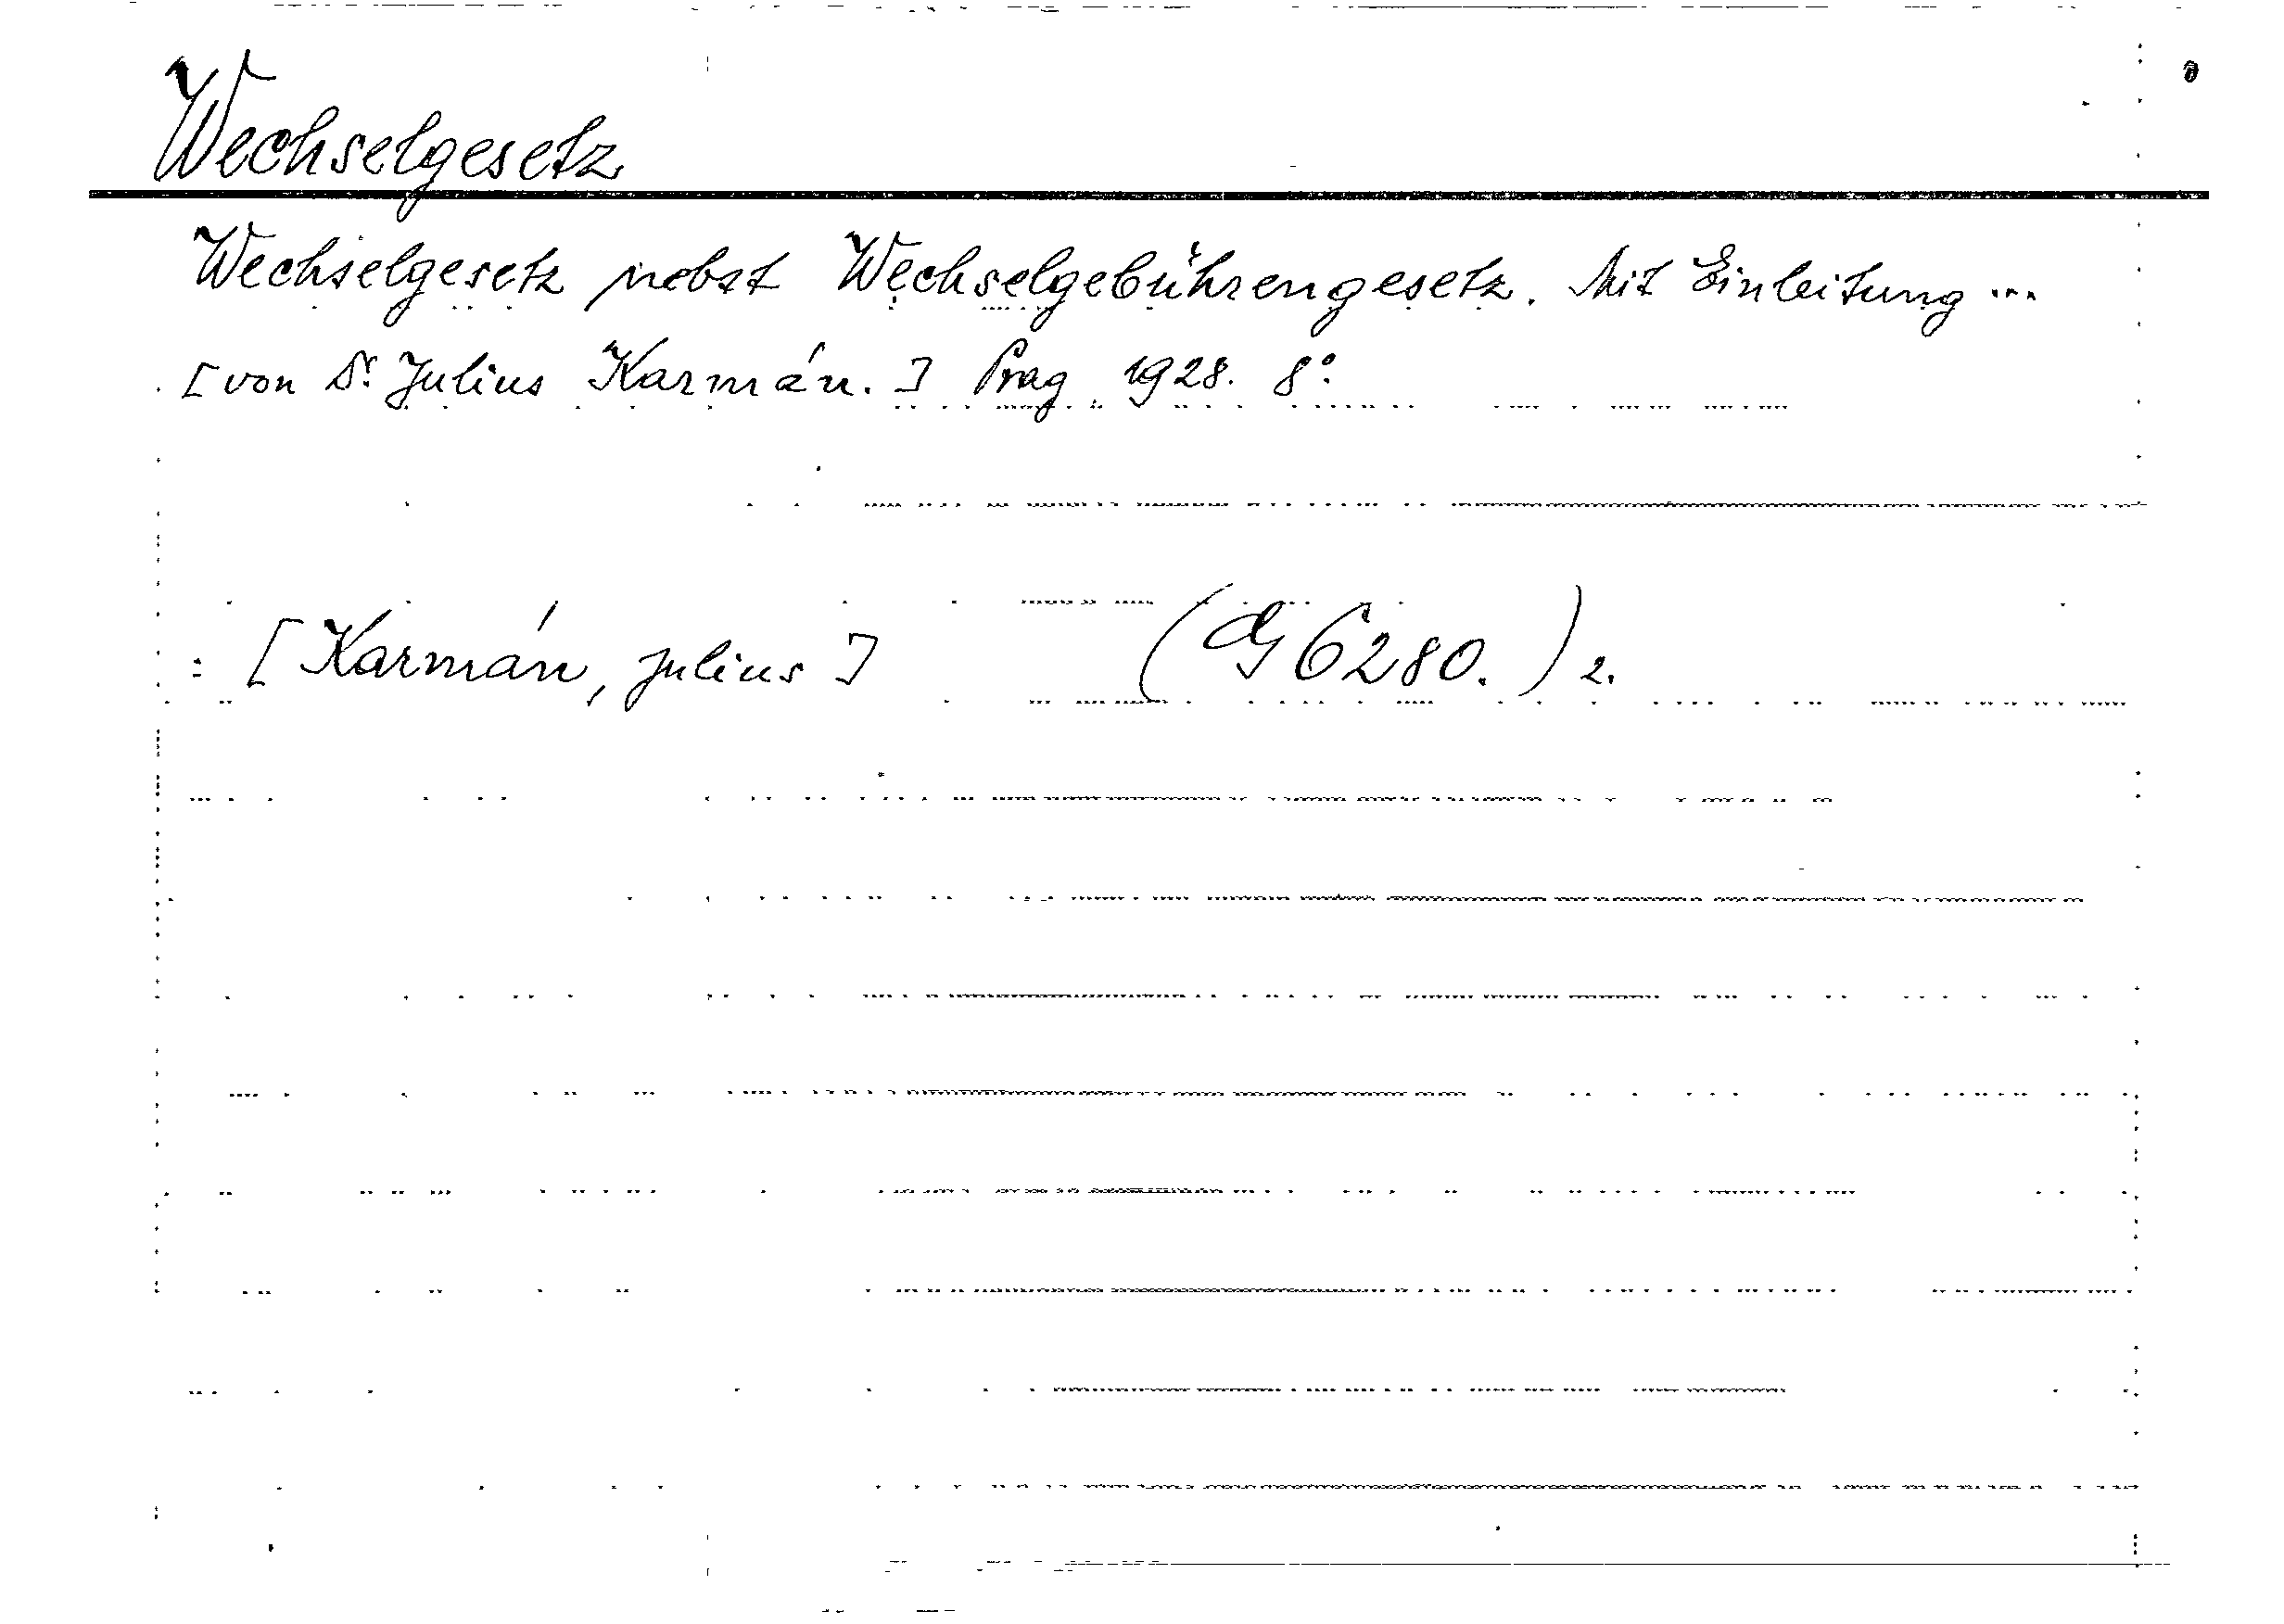 Wechselgesetz
Wechselgesetz nebst Wechselgebührengesetz. Mit Einleitung ...
[von Dr. Julius Karmán.] Prag, 1928. 8°.
= [Karmán, Julius] (G 6280.) 2.